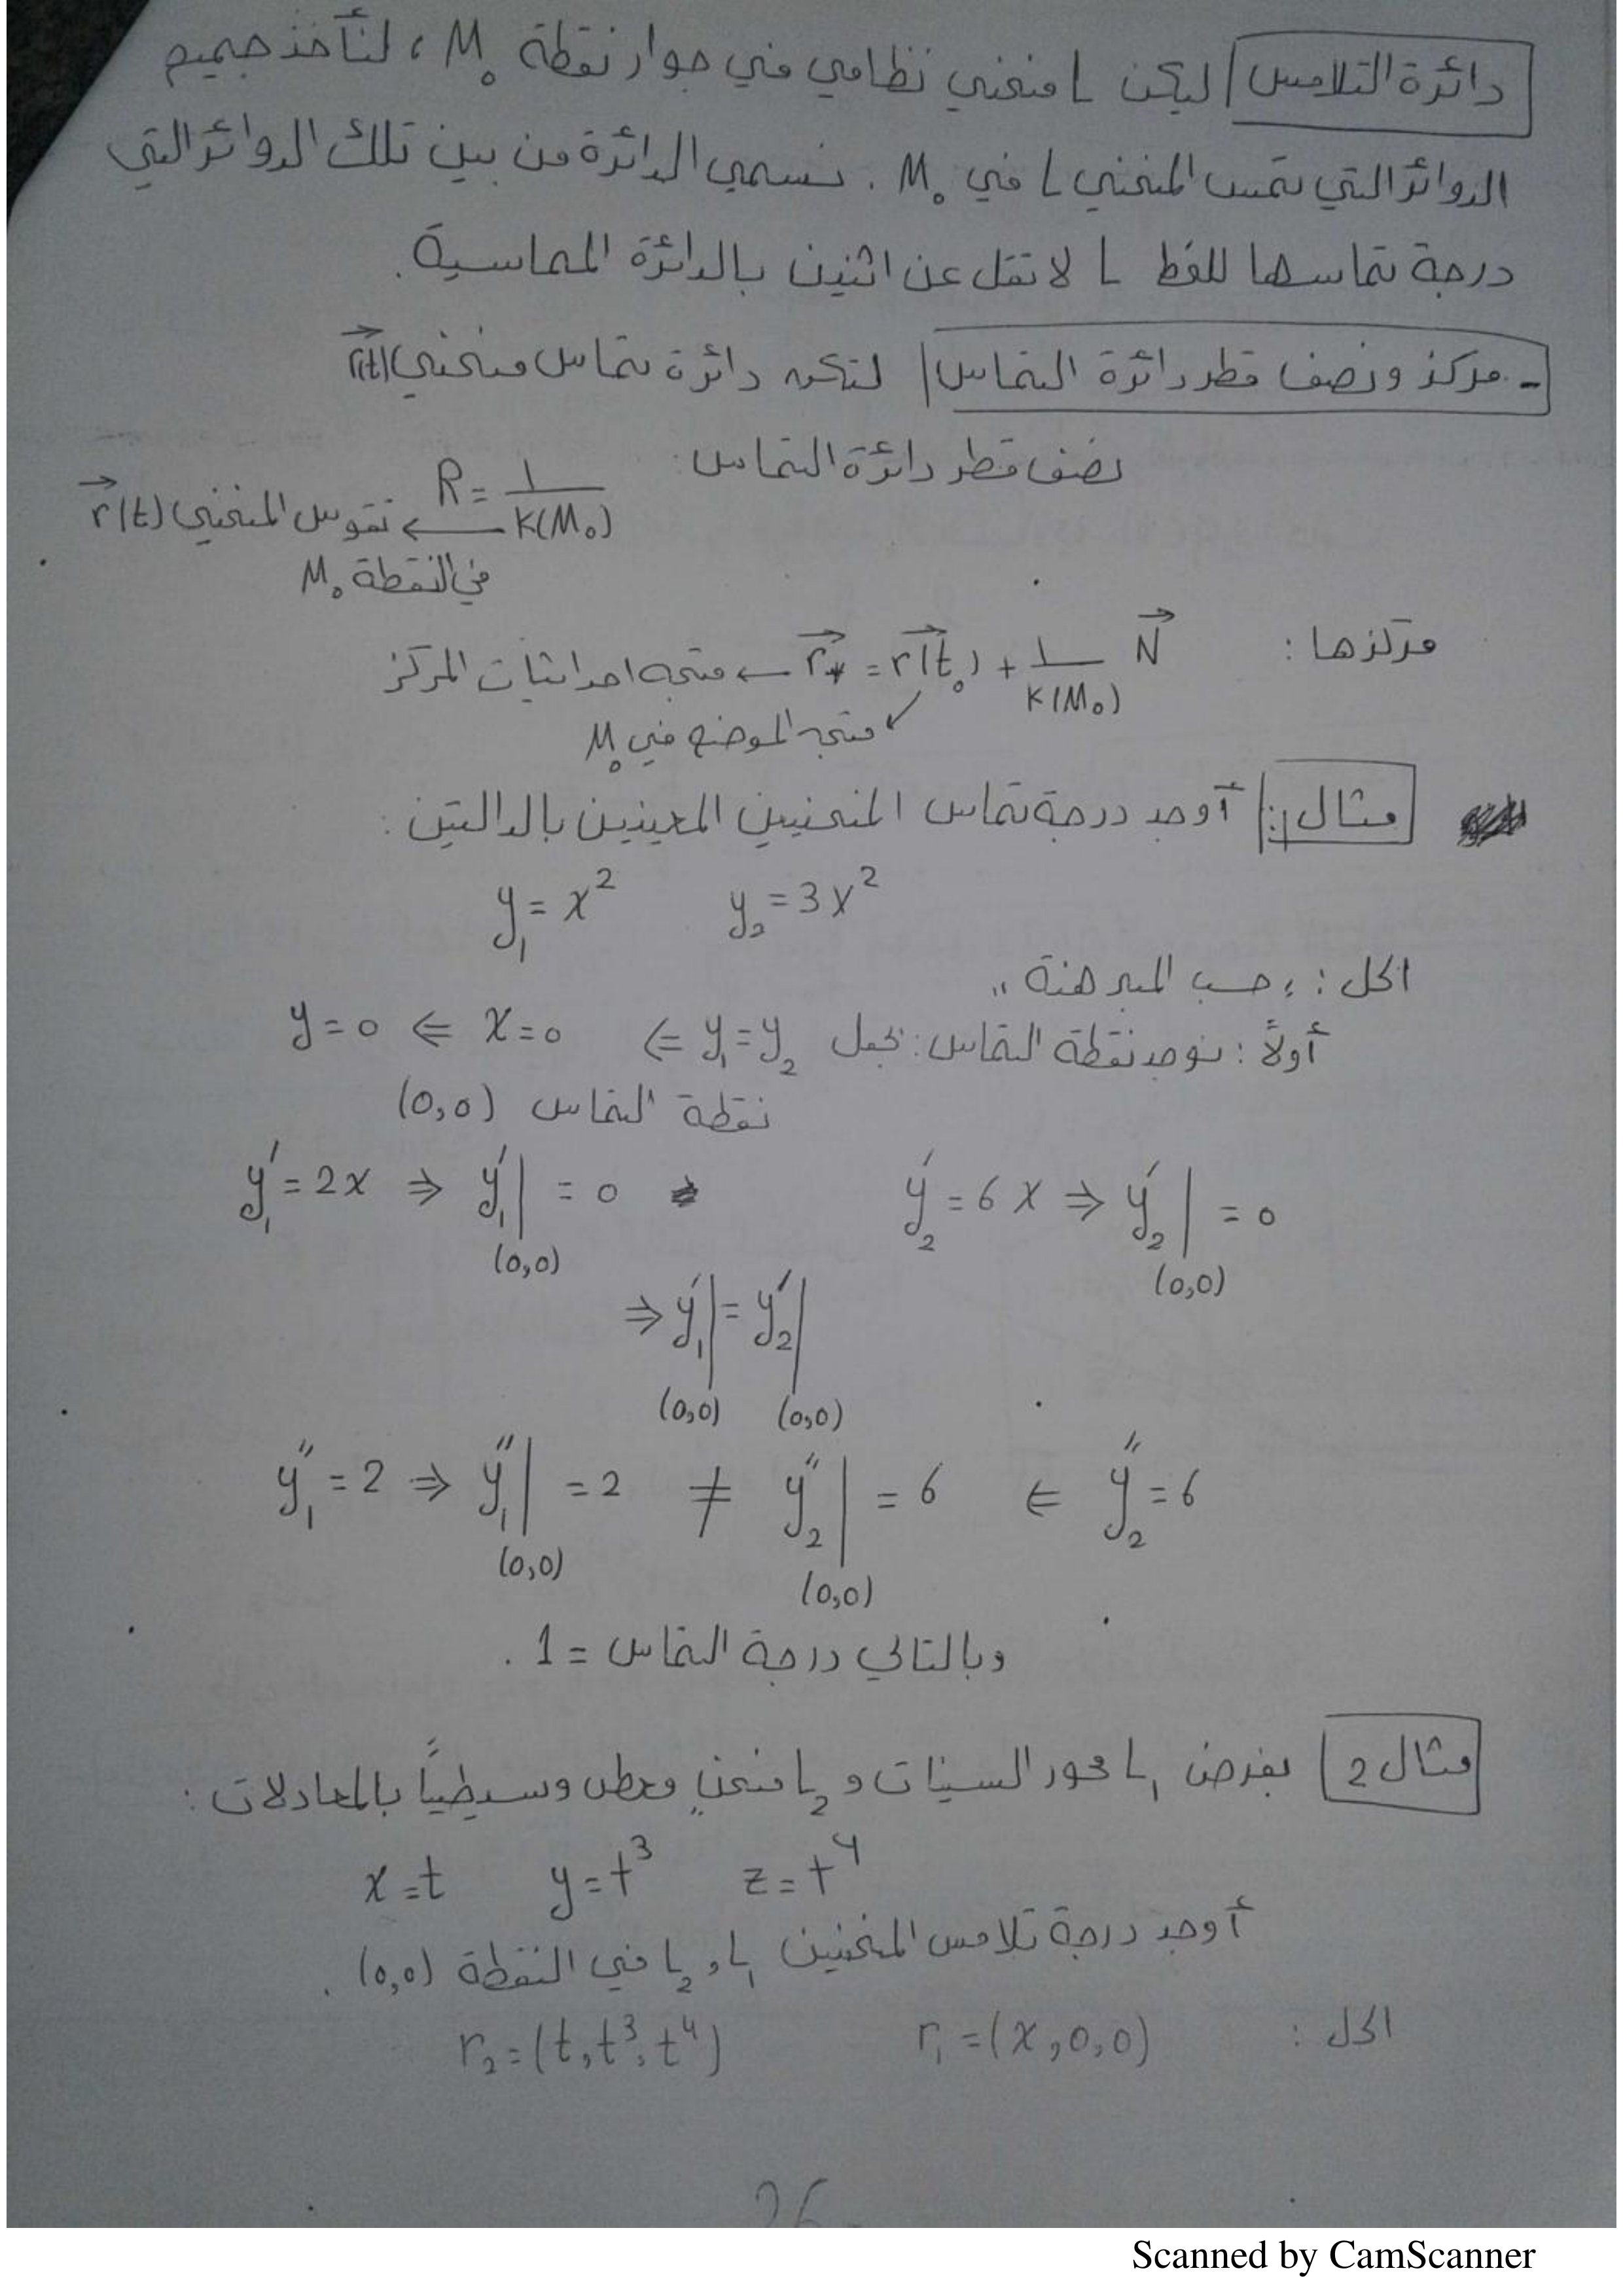 دائرة التلامس ليكن L منحني نظامي في جوار نقطة M₀ ، لنأخذ جميع
الدوائر التي تمس المنحني L في M₀ . نسمي الدائرة من بين تلك الدوائر التي
درجة تماسها للخط L لا تقل عن اثنين بالدائرة المماسية .
- مركز ونصف قطر دائرة التماس لتكن دائرة تماس منحني r⃗(t)
نصف قطر دائرة التماس :
R = 1/K(M₀) ← تقوس المنحني r⃗(t)
في النقطة M₀
مركزها : r⃗* = r⃗(t₀) + 1/K(M₀) N⃗ ← متجه احداثيات المركز
متجه الموضع في M₀
مثال 1: أوجد درجة تماس المنحنيين المعينين بالدالتين :
y₁ = x² y₂ = 3x²
الحل : حسب المبرهنة "
أولاً : نوجد نقطة التماس : نجعل y₁ = y₂ ⇐ x = 0 ⇐ y = 0
نقطة التماس (0,0)
y₁′ = 2x ⇒ y₁′|(0,0) = 0 y₂′ = 6x ⇒ y₂′|(0,0) = 0
⇒ y₁′|(0,0) = y₂′|(0,0)
y₁″ = 2 ⇒ y₁″|(0,0) = 2 ≠ y₂″|(0,0) = 6 ⇐ y₂″ = 6
وبالتالي درجة التماس = 1 .
مثال 2 بفرض L₁ محور السينات و L₂ منحنٍ معطى وسيطياً بالمعادلات :
x = t y = t³ z = t⁴
أوجد درجة تلامس المنحنيين L₁ و L₂ في النقطة (0,0) .
الحل : r₁ = (x,0,0) r₂ = (t, t³, t⁴)
26
Scanned by CamScanner